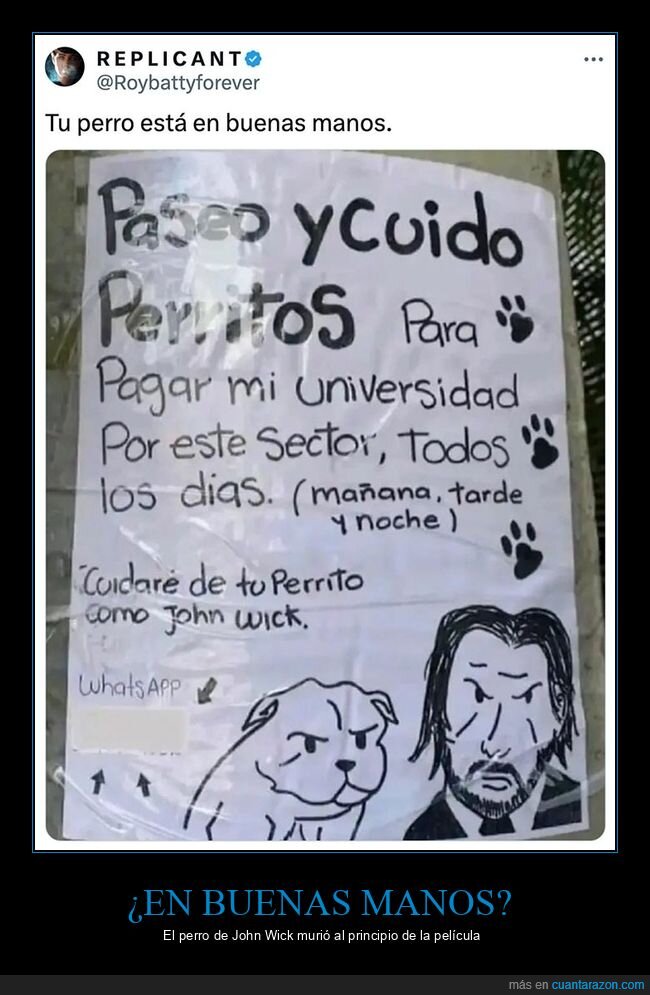 REPLICANT
@Roybattyforever
Tu perro está en buenas manos.
Paseo y Cuido
Perritos Para
Pagar mi universidad
Por este Sector, Todos
los dias. (mañana, tarde
y noche)
"Cuidaré de tu Perrito
como John Wick.
WhatsAPP
¿EN BUENAS MANOS?
El perro de John Wick murió al principio de la película
más en cuantarazon.com